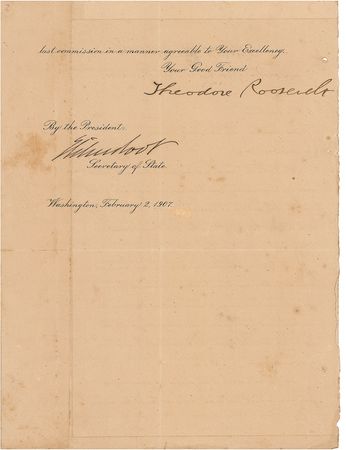 last commission in a manner agreeable to Your Excellency.
Your Good Friend
Theodore Roosevelt
By the President:
Elihu Root
Secretary of State.
Washington, February 2, 1907.